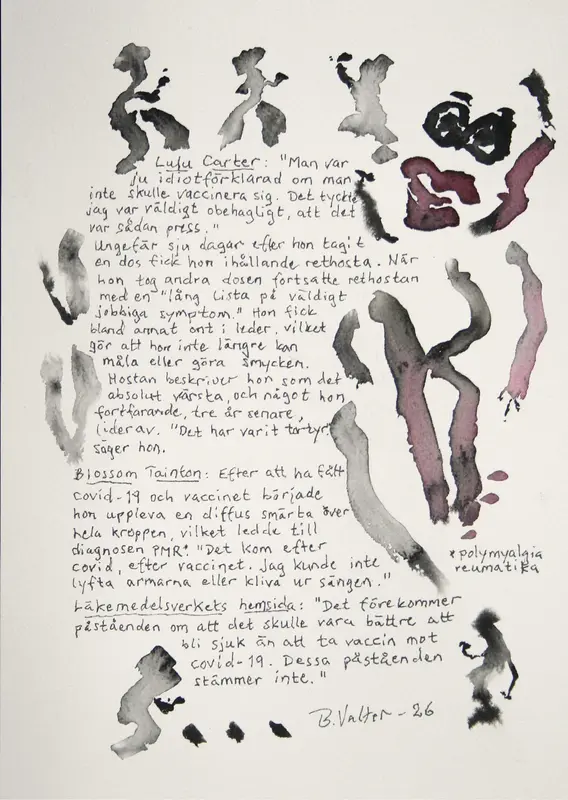 Lulu Carter: "Man var
ju idiotförklarad om man
inte skulle vaccinera sig. Det tyckte
jag var väldigt obehagligt, att det
var sådan press."
Ungefär sju dagar efter hon tagit
en dos fick hon ihållande rethosta. När
hon tog andra dosen fortsatte rethostan
med en "lång lista på väldigt
jobbiga symptom." Hon fick
bland annat ont i leder, vilket
gör att hon inte längre kan
måla eller göra smycken.
Hostan beskriver hon som det
absolut värsta, och något hon
fortfarande, tre år senare,
lider av. "Det har varit tortyr"
säger hon.
Blossom Tainton: Efter att ha fått
covid-19 och vaccinet började
hon uppleva en diffus smärta över
hela kroppen, vilket ledde till
diagnosen PMR*. "Det kom efter
covid, efter vaccinet. Jag kunde inte
lyfta armarna eller kliva ur sängen."
*polymyalgia
reumatika
Läkemedelsverkets hemsida: "Det förekommer
påståenden om att det skulle vara bättre att
bli sjuk än att ta vaccin mot
covid-19. Dessa påståenden
stämmer inte."
B. Valter - 26